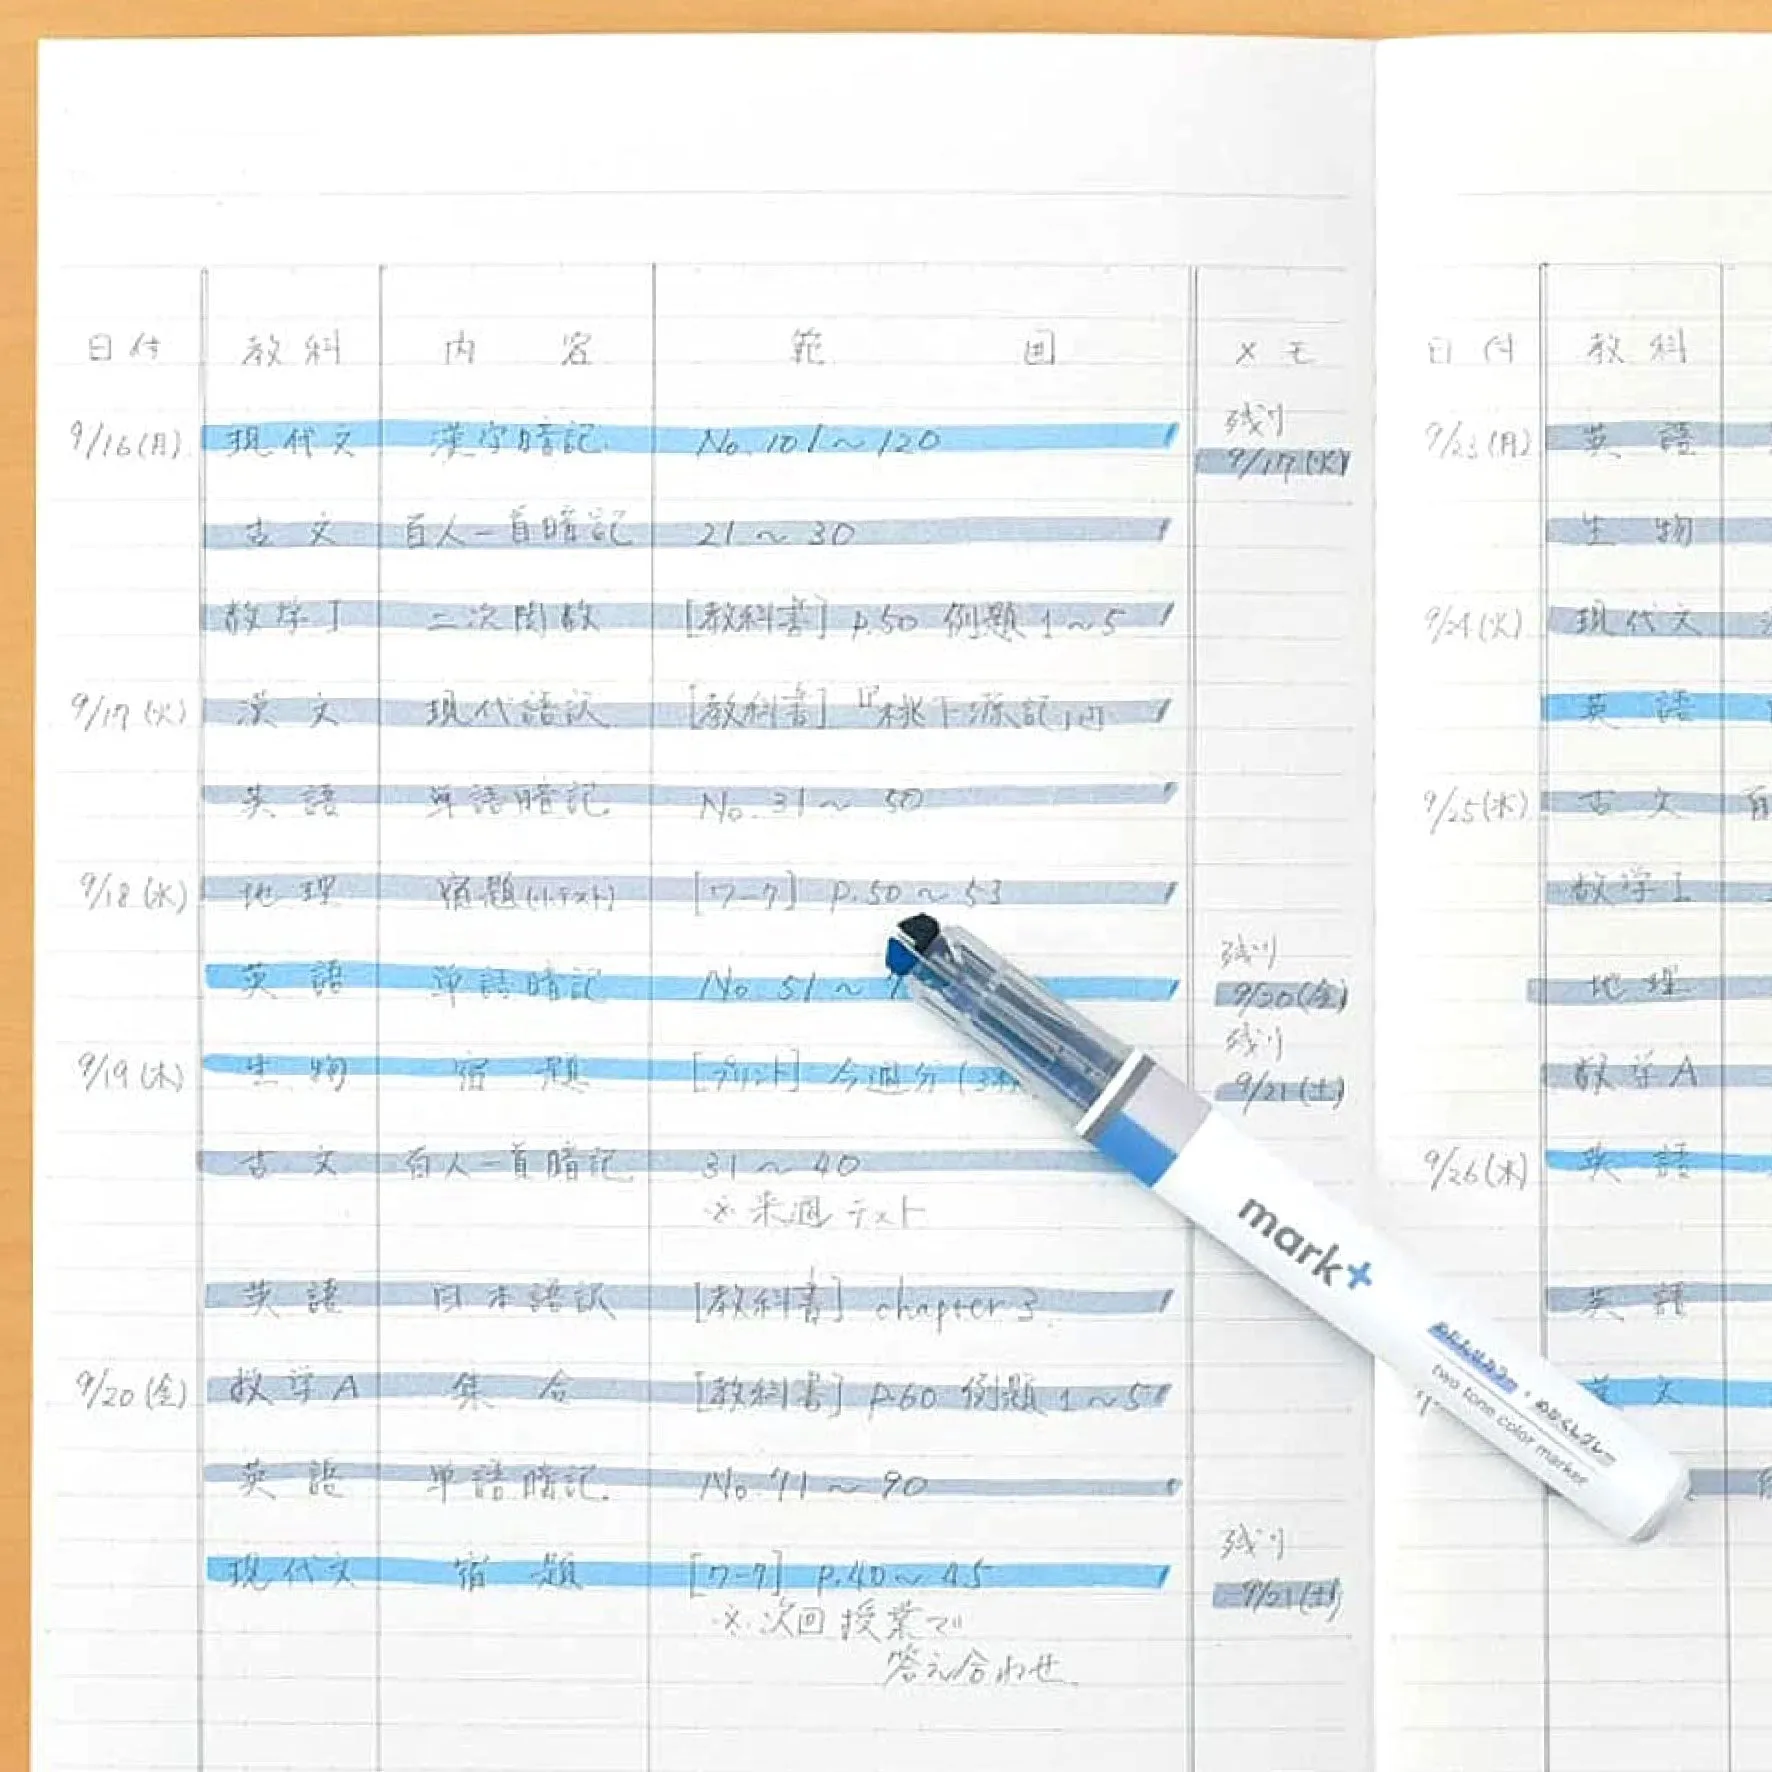 日付 教科 内容 範囲 メモ
9/16(月) 現代文 漢字暗記 No.101〜120 残り 9/17(火)
古文 百人一首暗記 21〜30
数学I 二次関数 [教科書] p.50 例題1〜5
9/17(火) 漢文 現代語訳 [教科書]『桃下源記』内
英語 単語暗記 No.31〜50
9/18(水) 地理 宿題(小テスト) [ワーク] p.50〜53
英語 単語暗記 No.51〜 残り 9/20(金)
9/19(木) 生物 宿題 [プリント] 今週分(3 残り 9/21(土)
古文 百人一首暗記 31〜40
※来週テスト
英語 日本語訳 [教科書] chapter 3
9/20(金) 数学A 集合 [教科書] p.60 例題1〜5
英語 単語暗記 No.71〜90
現代文 宿題 [ワーク] p.40〜45 残り 9/21(土)
※次回授業で
答え合わせ
日付 教科
9/23(月) 英語
生物
9/24(火) 現代文
英語
9/25(水) 古文 百
数学I
地理
数学A
9/26(木) 英語
英語
文
mark+
two tone color marker